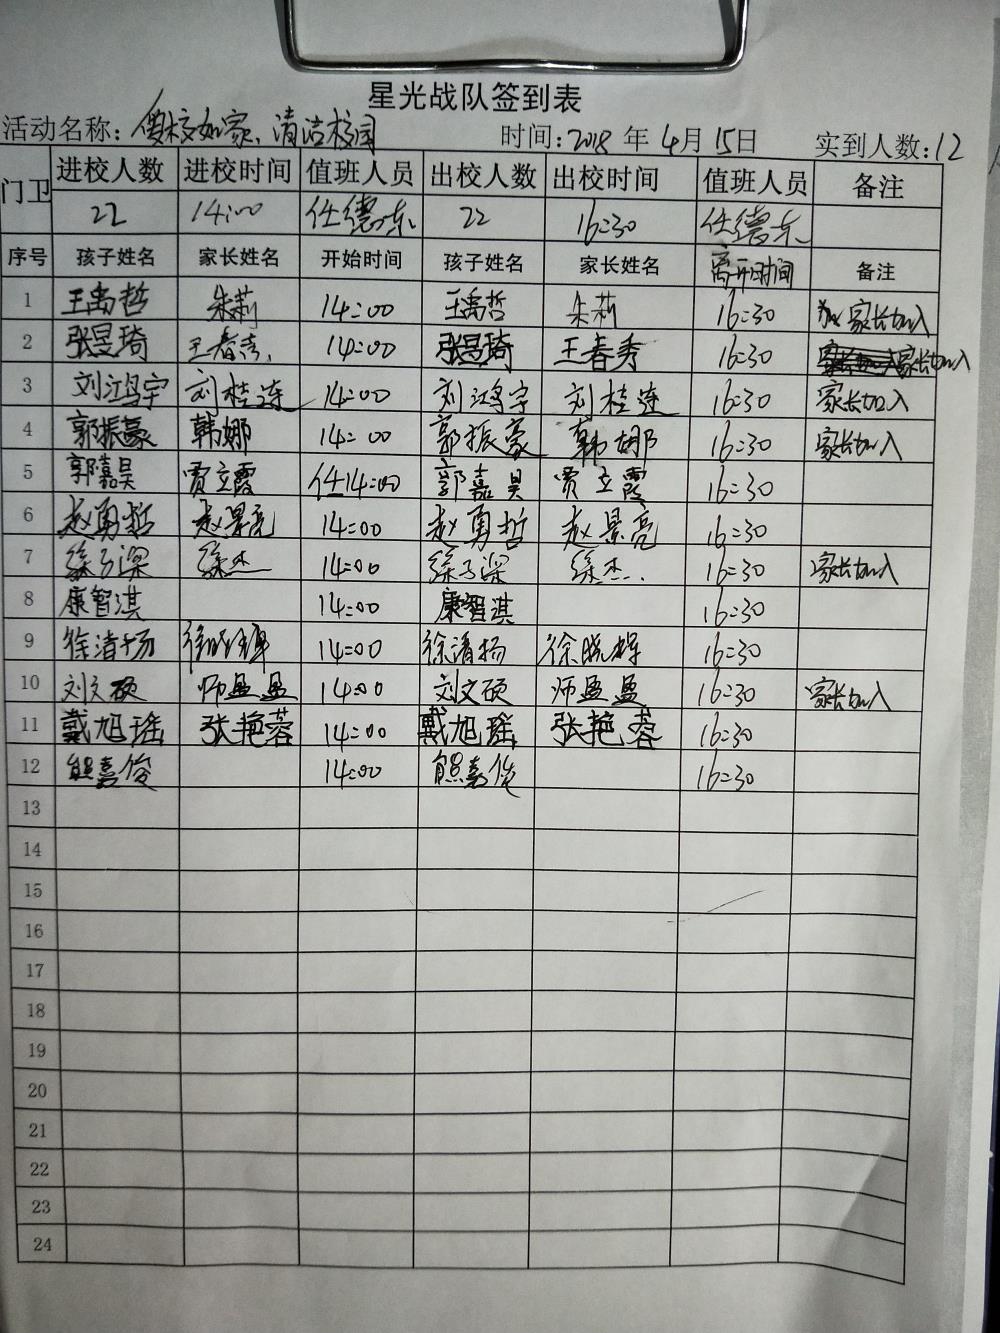 星光战队签到表
活动名称：爱校如家、清洁校园 时间：2018 年 4月 15日 实到人数：12
门卫 进校人数 进校时间 值班人员 出校人数 出校时间 值班人员 备注
22 14:00 任德东 22 16:30 任德东
序号 孩子姓名 家长姓名 开始时间 孩子姓名 家长姓名 离开时间 备注
1 王禹哲 朱莉 14:00 王禹哲 朱莉 16:30 家长加入
2 张昱琦 王春秀 14:00 张昱琦 王春秀 16:30 家长加入
3 刘鸿宇 刘桂连 14:00 刘鸿宇 刘桂连 16:30 家长加入
4 郭振豪 韩娜 14:00 郭振豪 韩娜 16:30 家长加入
5 郭嘉昊 贾立霞 14:00 郭嘉昊 贾立霞 16:30
6 赵勇哲 赵景亮 14:00 赵勇哲 赵景亮 16:30
7 徐子梁 徐杰 14:00 徐子梁 徐杰 16:30 家长加入
8 康智淇 14:00 康智淇 16:30
9 徐清扬 徐晓辉 14:00 徐清扬 徐晓辉 16:30
10 刘文硕 师盈盈 14:00 刘文硕 师盈盈 16:30 家长加入
11 戴旭瑶 张艳蓉 14:00 戴旭瑶 张艳蓉 16:30
12 熊嘉俊 14:00 熊嘉俊 16:30
13
14
15
16
17
18
19
20
21
22
23
24